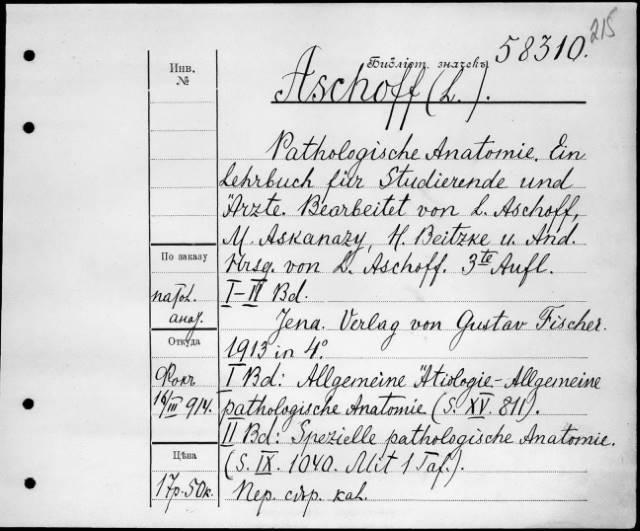 215
Библіот. значекъ 58310.
Инв.
№
Aschoff (L.).
Pathologische Anatomie. Ein
Lehrbuch für Studierende und
Ärzte. Bearbeitet von L. Aschoff,
M. Askanazy, H. Beitzke u. And.
По заказу
Hrsg. von L. Aschoff. 3te Aufl.
патол.
I–II Bd.
анат.
Jena. Verlag von Gustav Fischer.
Откуда
1913 in 4°.
Фокъ
I Bd: Allgemeine Ätiologie–Allgemeine
16/III 914.
pathologische Anatomie (S. XV. 811).
II Bd: Spezielle pathologische Anatomie.
Цѣна
(S. IX. 1040. Mit 1 Taf.).
17р–50к.